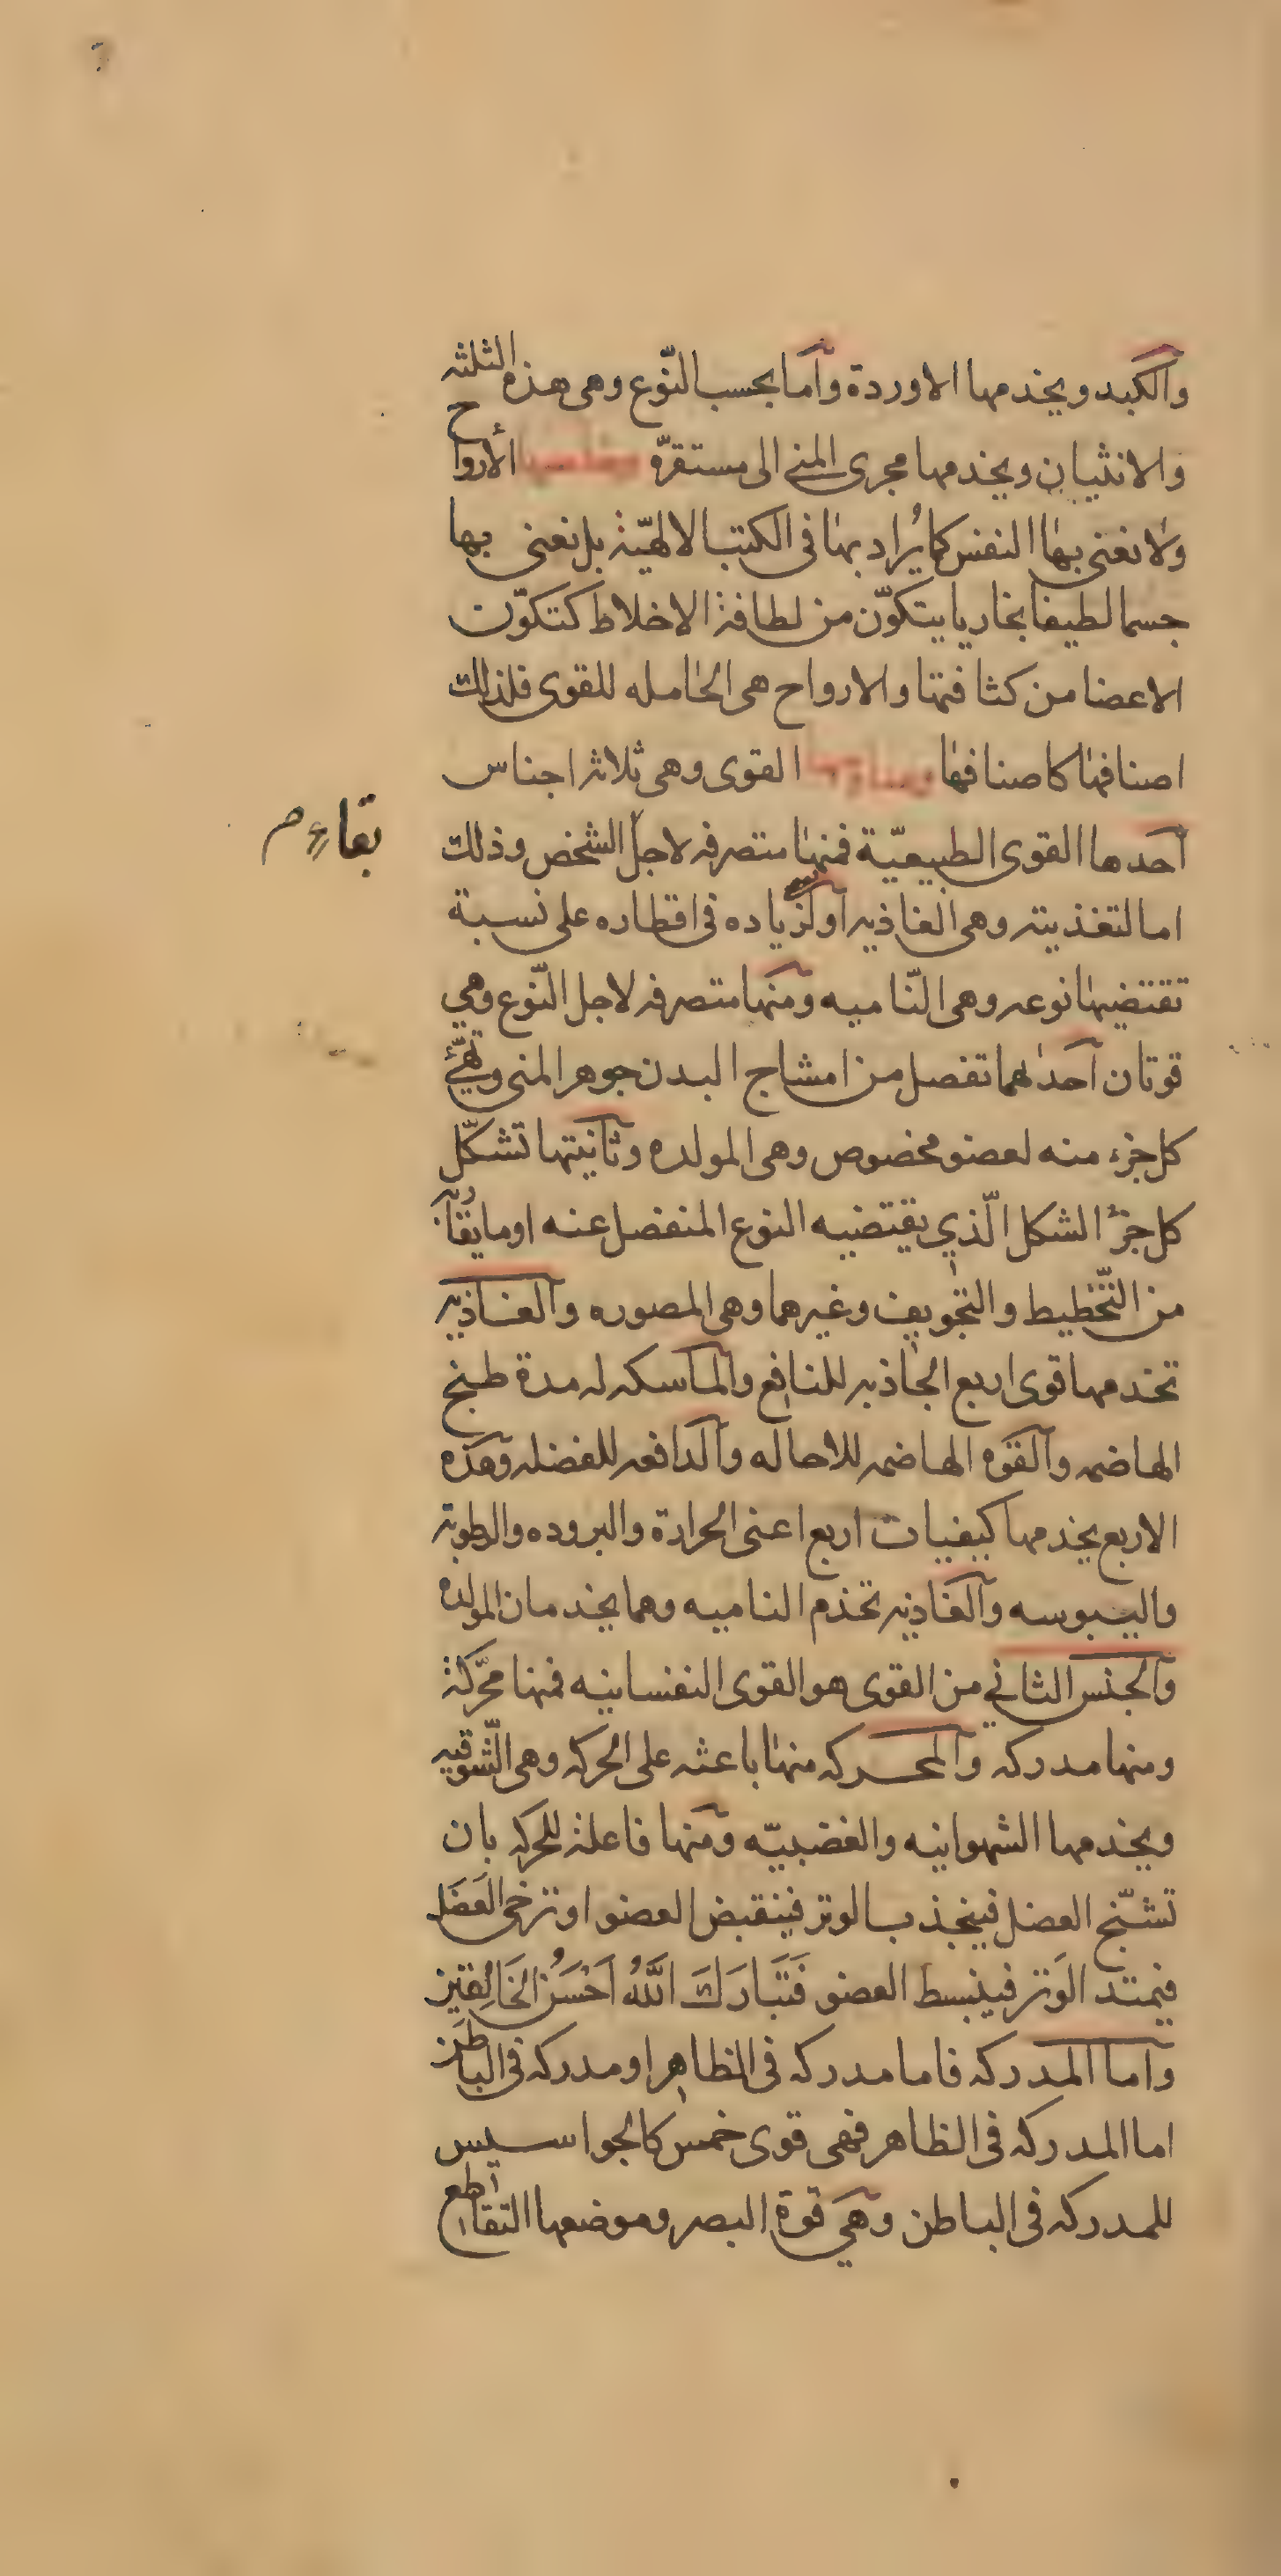 والكبد ويخدمها الاوردة وآما بحسب النّوع وهى هذه الثلثه
والانثيان ويخدمها مجرى المنى الى مستقرّه وخامسها الأرواح
ولا نعنى بها النفس كما يُراد بها فى الكتب الالهيّة بل نعنى بها
جسما لطيفا بخاريا يتكوّن من لطافة الاخلاط كتكوّن
الاعضا من كثافتها والارواح هى الحامله للقوى فلذلك
اصنافها كاصنافها وسادسها القوى وهى ثلاثه اجناس
آحدها القوى الطبيعيّة فمنها متصرفه لاجل الشخص وذلك
بقاءه م
اما لتغذيته وهى الغاذيه آو لزياده فى اقطاره على نسبة
تقتضيها نوعه وهى النّاميه ومنها متصرفه لاجل النّوع وهي
قوتان آحداهما تفصل من امشاج البدن جوهر المنى وتهيّئ
كل جزء منه لعضو مخصوص وهى المولده وثانيتها تشكّل
كل جزئ الشكل الّذي يقتضيه النوع المنفصل عنه او ما يقا
من التّخطيط والتجويف وغيرهما وهى المصوره والغاذيه
تخدمها قوى اربع الجاذبه للنافع والماسكه له مدة طبخ
الهاضمه والقوه الهاضمه للاحاله والدافعه للفضله وهذه
الاربع يخدمها كيفيات اربع اعنى الحرارة والبروده والرطوبة
واليبوسه والغاذيه تخذم الناميه وهما يخدمان المولده
والجنس الثاني من القوى هو القوى النفسانيه فمنها محّركة
ومنها مدركه والمحركه منها باعثه على الحركه وهى الشّوقيه
ويخدمها الشهوانيه والغضبيّه ومنها فاعلة للحركه بان
تشنّج العضل فينجذب الوتر فينقبض العضو او ترخى العَضَل
فيمتد الوَتر فينبسط العضو فَتَبَارَكَ اللَّهُ اَحْسَنُ الخَالِقين
وآما المدركه فاما مدركه فى الظاهر او مدركه فى الباطن
اما المدركه فى الظاهر فهى قوى خمس كالجواسيس
للمدركه فى الباطن وهي قوة البصر وموضعها التقاطع